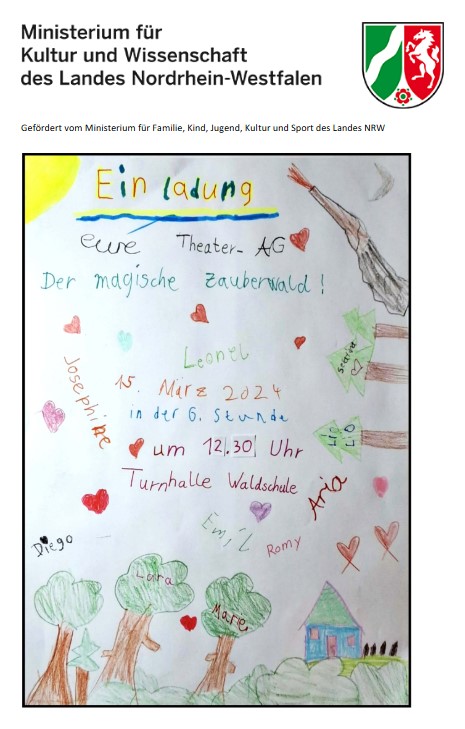 Ministerium für
Kultur und Wissenschaft
des Landes Nordrhein-Westfalen
Gefördert vom Ministerium für Familie, Kind, Jugend, Kultur und Sport des Landes NRW
Einladung
eure Theater-AG
Der magische Zauberwald!
Leonel
Josephine
15. März 2024
in der 6. Stunde
um 12.30 Uhr
Turnhalle Waldschule
Lio
Aria
Emil
Romy
Diego
Lara
Marie